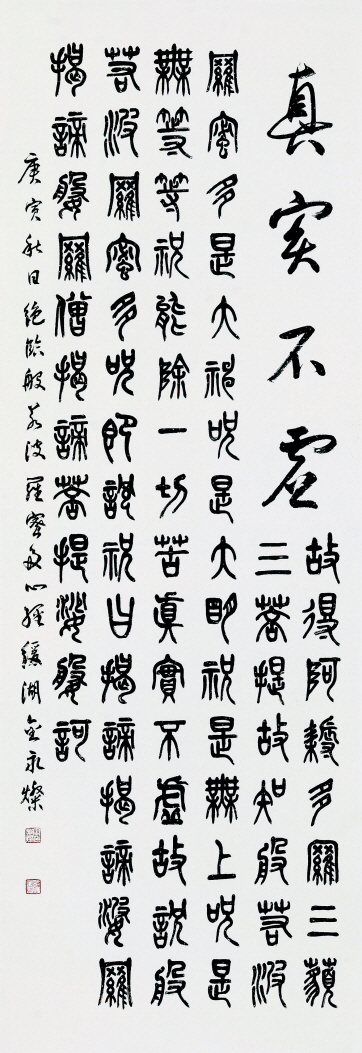 真実不虚
故得阿耨多羅三藐
三菩提故知般若波
羅蜜多是大神呪是大明祝是無上呪是
無等等祝能除一切苦眞實不虛故説般
若波羅蜜多呪即説祝曰揭諦揭諦婆羅
揭諦婆羅僧揭諦菩提娑婆訶
庚寅秋日絶臨般若波羅蜜多心經緩湖金永燦